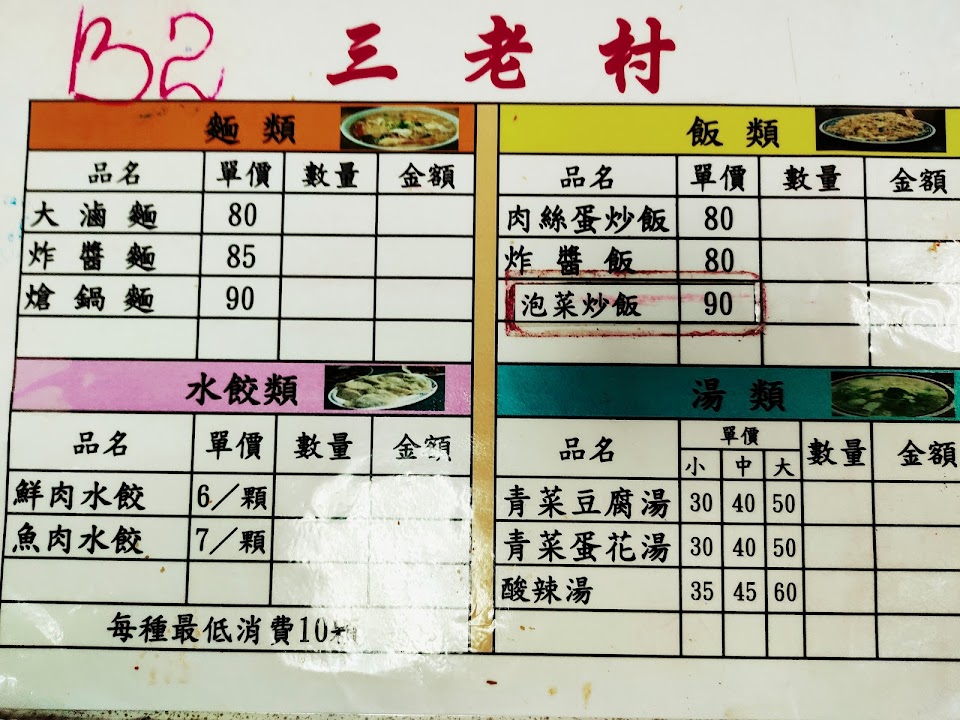 B2 三老村
麵類
品名 單價 數量 金額
大滷麵 80
炸醬麵 85
熗鍋麵 90
飯類
品名 單價 數量 金額
肉絲蛋炒飯 80
炸醬飯 80
泡菜炒飯 90
水餃類
品名 單價 數量 金額
鮮肉水餃 6/顆
魚肉水餃 7/顆
每種最低消費10
湯類
品名 單價 數量 金額
小 中 大
青菜豆腐湯 30 40 50
青菜蛋花湯 30 40 50
酸辣湯 35 45 60